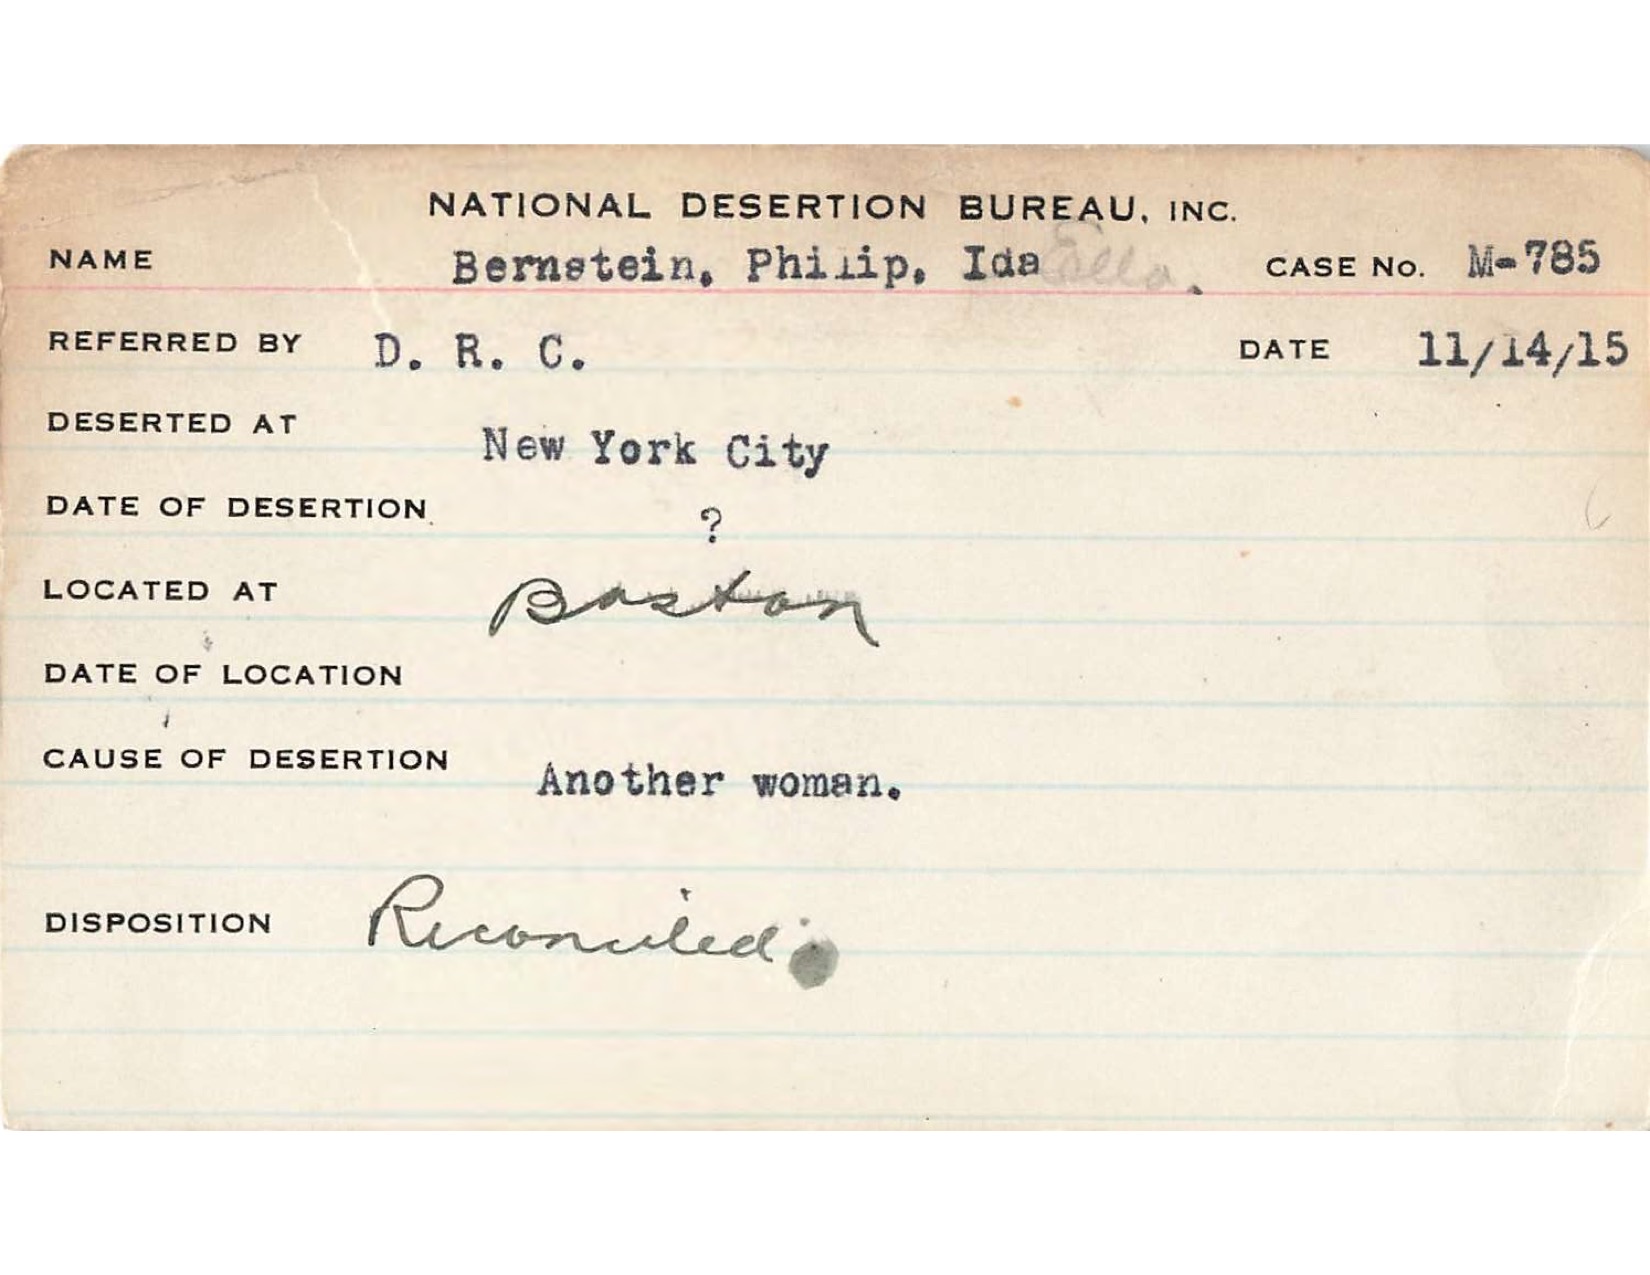 NATIONAL DESERTION BUREAU, INC.
NAME Bernstein, Philip, Ida Ella. CASE No. M-785
REFERRED BY D. R. C. DATE 11/14/15
DESERTED AT New York City
DATE OF DESERTION ?
LOCATED AT Boston
DATE OF LOCATION
CAUSE OF DESERTION Another woman.
DISPOSITION Reconciled.